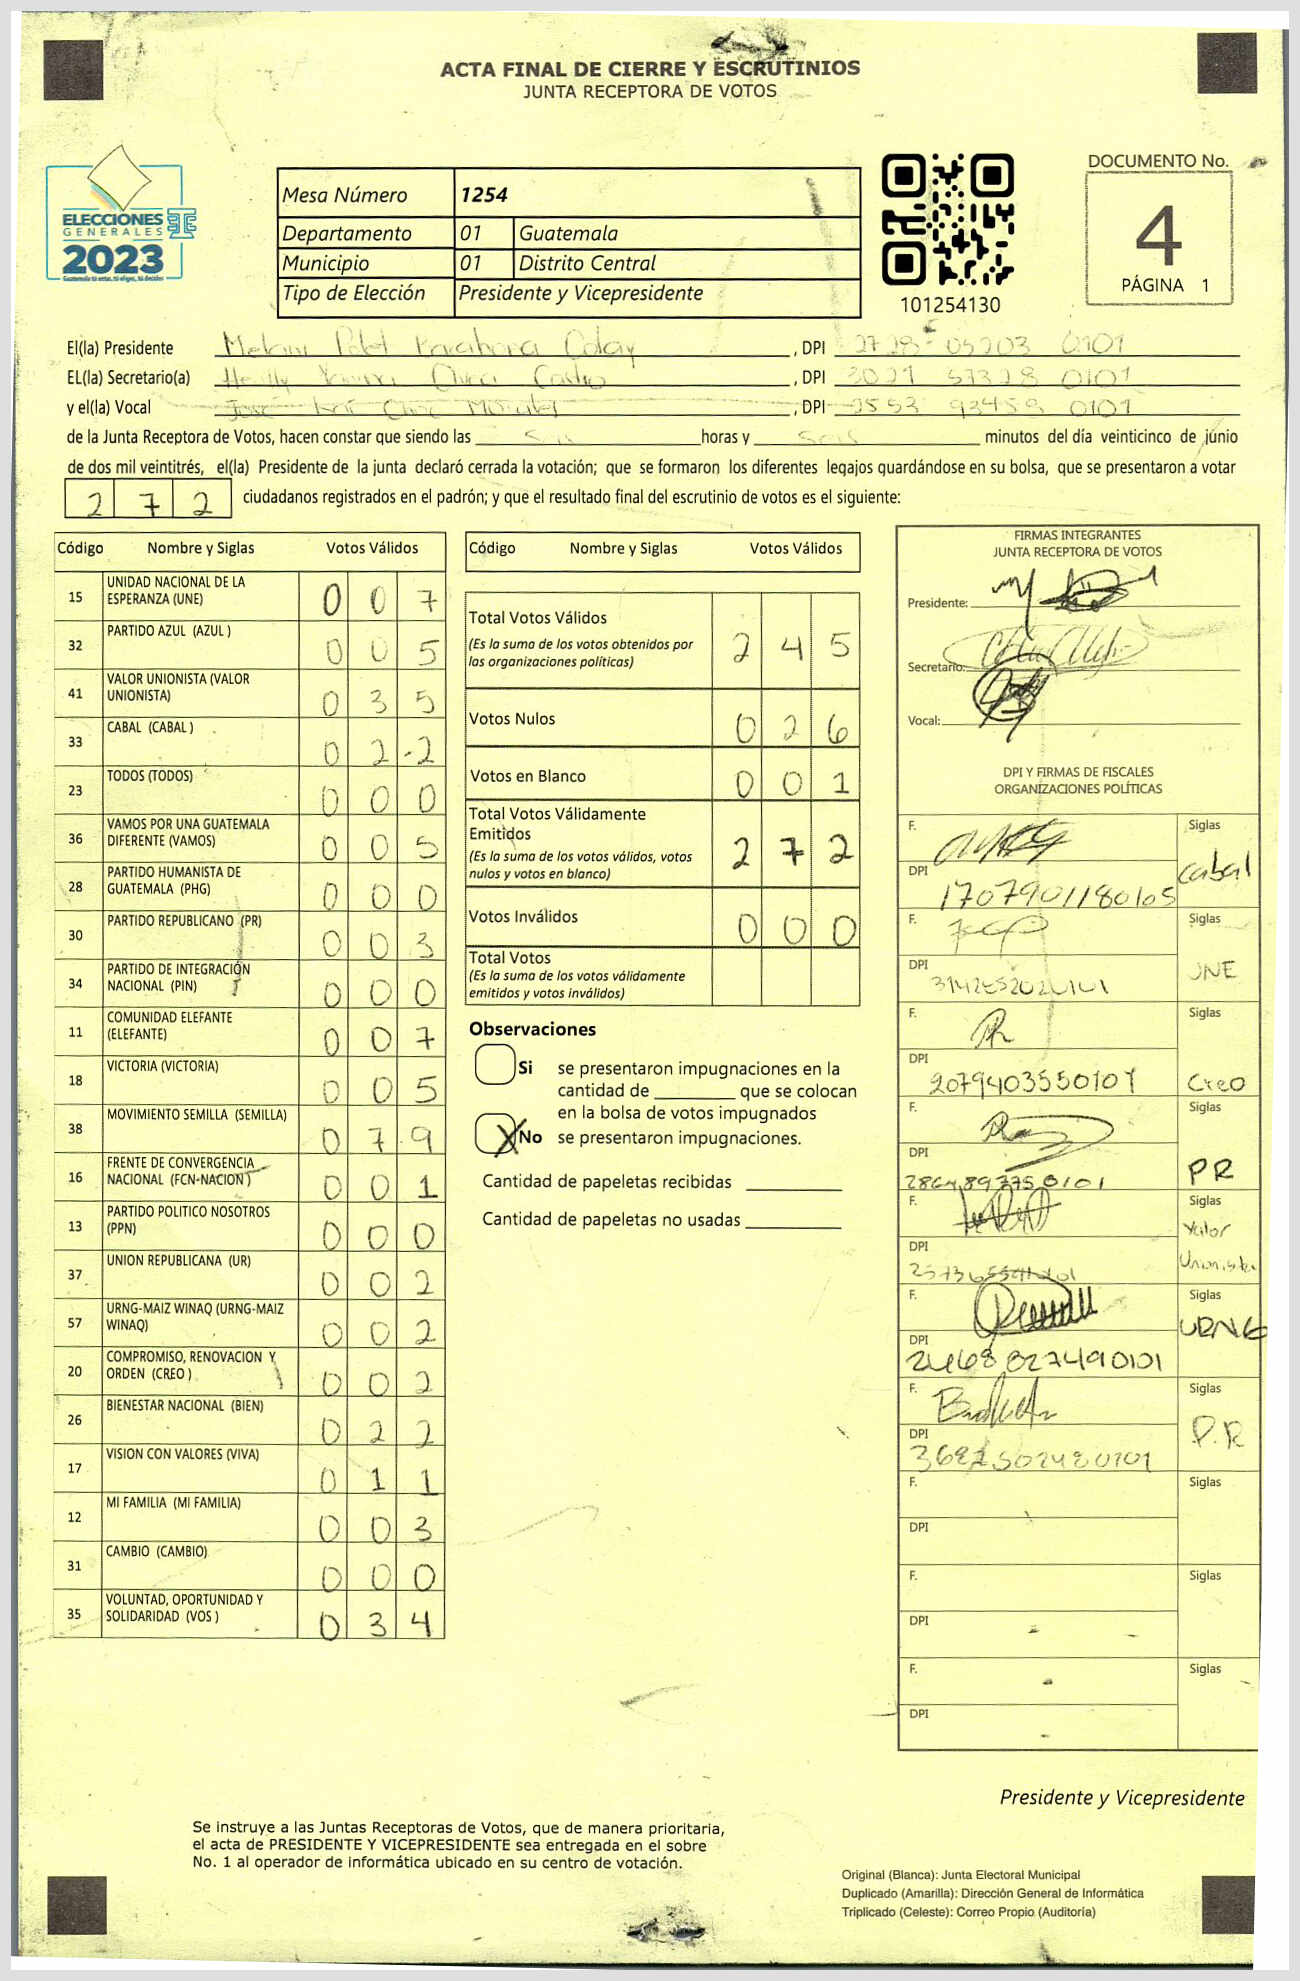 ACTA FINAL DE CIERRE Y ESCRUTINIOS
JUNTA RECEPTORA DE VOTOS
ELECCIONES
GENERALES
2023
Mesa Número 1254
Departamento 01 Guatemala
Municipio 01 Distrito Central
Tipo de Elección Presidente y Vicepresidente
101254130
DOCUMENTO No.
4
PÁGINA 1
El(la) Presidente , DPI 0101
EL(la) Secretario(a) Castro , DPI 0101
y el(la) Vocal José Morales , DPI 0101
de la Junta Receptora de Votos, hacen constar que siendo las seis horas y seis minutos del día veinticinco de junio
de dos mil veintitrés, el(la) Presidente de la junta declaró cerrada la votación; que se formaron los diferentes legajos guardándose en su bolsa, que se presentaron a votar
2 7 2 ciudadanos registrados en el padrón; y que el resultado final del escrutinio de votos es el siguiente:
Código Nombre y Siglas Votos Válidos
15 UNIDAD NACIONAL DE LA ESPERANZA (UNE) 0 0 7
32 PARTIDO AZUL (AZUL ) 0 0 5
41 VALOR UNIONISTA (VALOR UNIONISTA) 0 3 5
33 CABAL (CABAL ) 0 2 2
23 TODOS (TODOS) 0 0 0
36 VAMOS POR UNA GUATEMALA DIFERENTE (VAMOS) 0 0 5
28 PARTIDO HUMANISTA DE GUATEMALA (PHG) 0 0 0
30 PARTIDO REPUBLICANO (PR) 0 0 3
34 PARTIDO DE INTEGRACIÓN NACIONAL (PIN) 0 0 0
11 COMUNIDAD ELEFANTE (ELEFANTE) 0 0 7
18 VICTORIA (VICTORIA) 0 0 5
38 MOVIMIENTO SEMILLA (SEMILLA) 0 7 9
16 FRENTE DE CONVERGENCIA NACIONAL (FCN-NACION ) 0 0 1
13 PARTIDO POLITICO NOSOTROS (PPN) 0 0 0
37 UNION REPUBLICANA (UR) 0 0 2
57 URNG-MAIZ WINAQ (URNG-MAIZ WINAQ) 0 0 2
20 COMPROMISO, RENOVACION Y ORDEN (CREO ) 0 0 2
26 BIENESTAR NACIONAL (BIEN) 0 2 2
17 VISION CON VALORES (VIVA) 0 1 1
12 MI FAMILIA (MI FAMILIA) 0 0 3
31 CAMBIO (CAMBIO) 0 0 0
35 VOLUNTAD, OPORTUNIDAD Y SOLIDARIDAD (VOS ) 0 3 4
Código Nombre y Siglas Votos Válidos
Total Votos Válidos 2 4 5
(Es la suma de los votos obtenidos por
las organizaciones políticas)
Votos Nulos 0 2 6
Votos en Blanco 0 0 1
Total Votos Válidamente
Emitidos 2 7 2
(Es la suma de los votos válidos, votos
nulos y votos en blanco)
Votos Inválidos 0 0 0
Total Votos
(Es la suma de los votos válidamente
emitidos y votos inválidos)
Observaciones
Si se presentaron impugnaciones en la
cantidad de ________ que se colocan
en la bolsa de votos impugnados
X No se presentaron impugnaciones.
Cantidad de papeletas recibidas
Cantidad de papeletas no usadas
FIRMAS INTEGRANTES
JUNTA RECEPTORA DE VOTOS
Presidente:
Secretario:
Vocal:
DPI Y FIRMAS DE FISCALES
ORGANIZACIONES POLÍTICAS
F. Siglas
DPI 1707901180105 Cabal
F. Siglas
DPI UNE
F. Siglas
DPI 2079403550101 Creo
F. Siglas
DPI PR
F. Siglas
DPI Valor Unionista
F. Siglas
DPI 2468827490101 URNG
F. Siglas
DPI P.R
F. Siglas
DPI
F. Siglas
DPI
F. Siglas
DPI
Presidente y Vicepresidente
Se instruye a las Juntas Receptoras de Votos, que de manera prioritaria,
el acta de PRESIDENTE Y VICEPRESIDENTE sea entregada en el sobre
No. 1 al operador de informática ubicado en su centro de votación.
Original (Blanca): Junta Electoral Municipal
Duplicado (Amarilla): Dirección General de Informática
Triplicado (Celeste): Correo Propio (Auditoría)